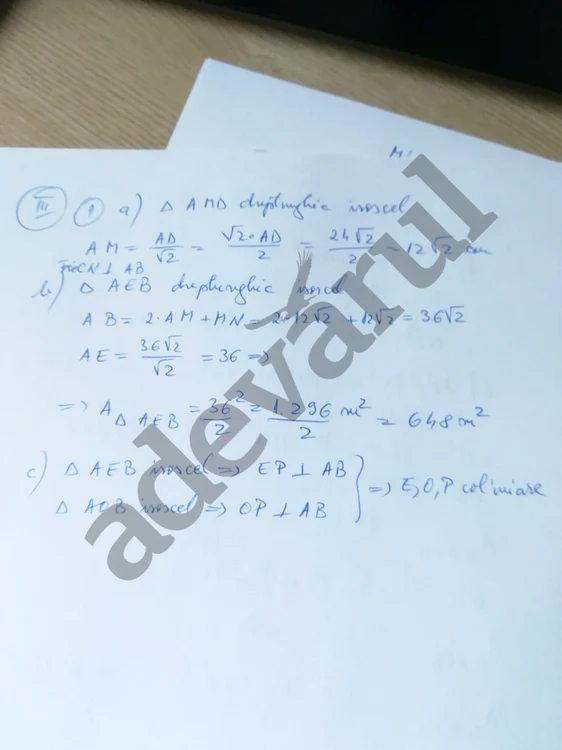 M'
III 1 a) Δ AMD dreptunghic isoscel
AM = AD/√2 = √2·AD/2 = 24√2/2 = 12√2 cm
Fie CN ⊥ AB
b) Δ AEB dreptunghic isoscel
AB = 2·AM + MN = 2·12√2 + 12√2 = 36√2
AE = 36√2/√2 = 36 =>
=> A Δ AEB = 36²/2 = 1.296/2 m² = 648 m²
c) Δ AEB isoscel => EP ⊥ AB
Δ AOB isoscel => OP ⊥ AB } => E,O,P coliniare
adevarul